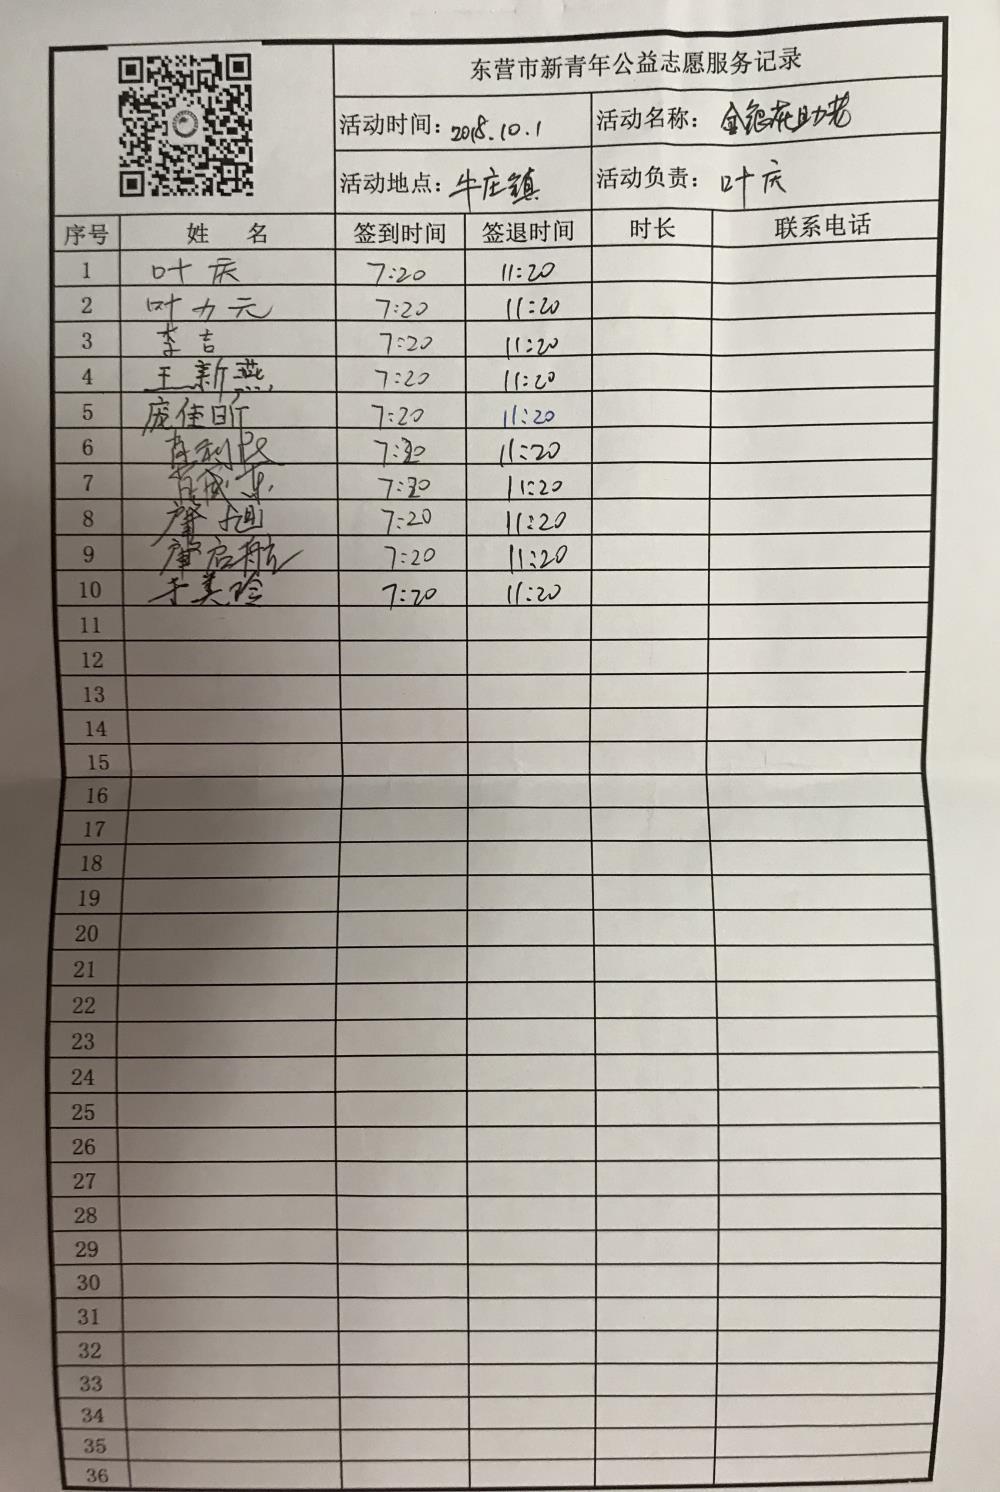 东营市新青年公益志愿服务记录
活动时间：2018.10.1 活动名称：金银花助老
活动地点：牛庄镇 活动负责：叶庆
序号 姓 名 签到时间 签退时间 时长 联系电话
1 叶庆 7:20 11:20
2 叶力元 7:20 11:20
3 李吉 7:20 11:20
4 王新燕 7:20 11:20
5 庞佳昕 7:20 11:20
6 7:20 11:20
7 7:20 11:20
8 7:20 11:20
9 启航 7:20 11:20
10 于美玲 7:20 11:20
11
12
13
14
15
16
17
18
19
20
21
22
23
24
25
26
27
28
29
30
31
32
33
34
35
36